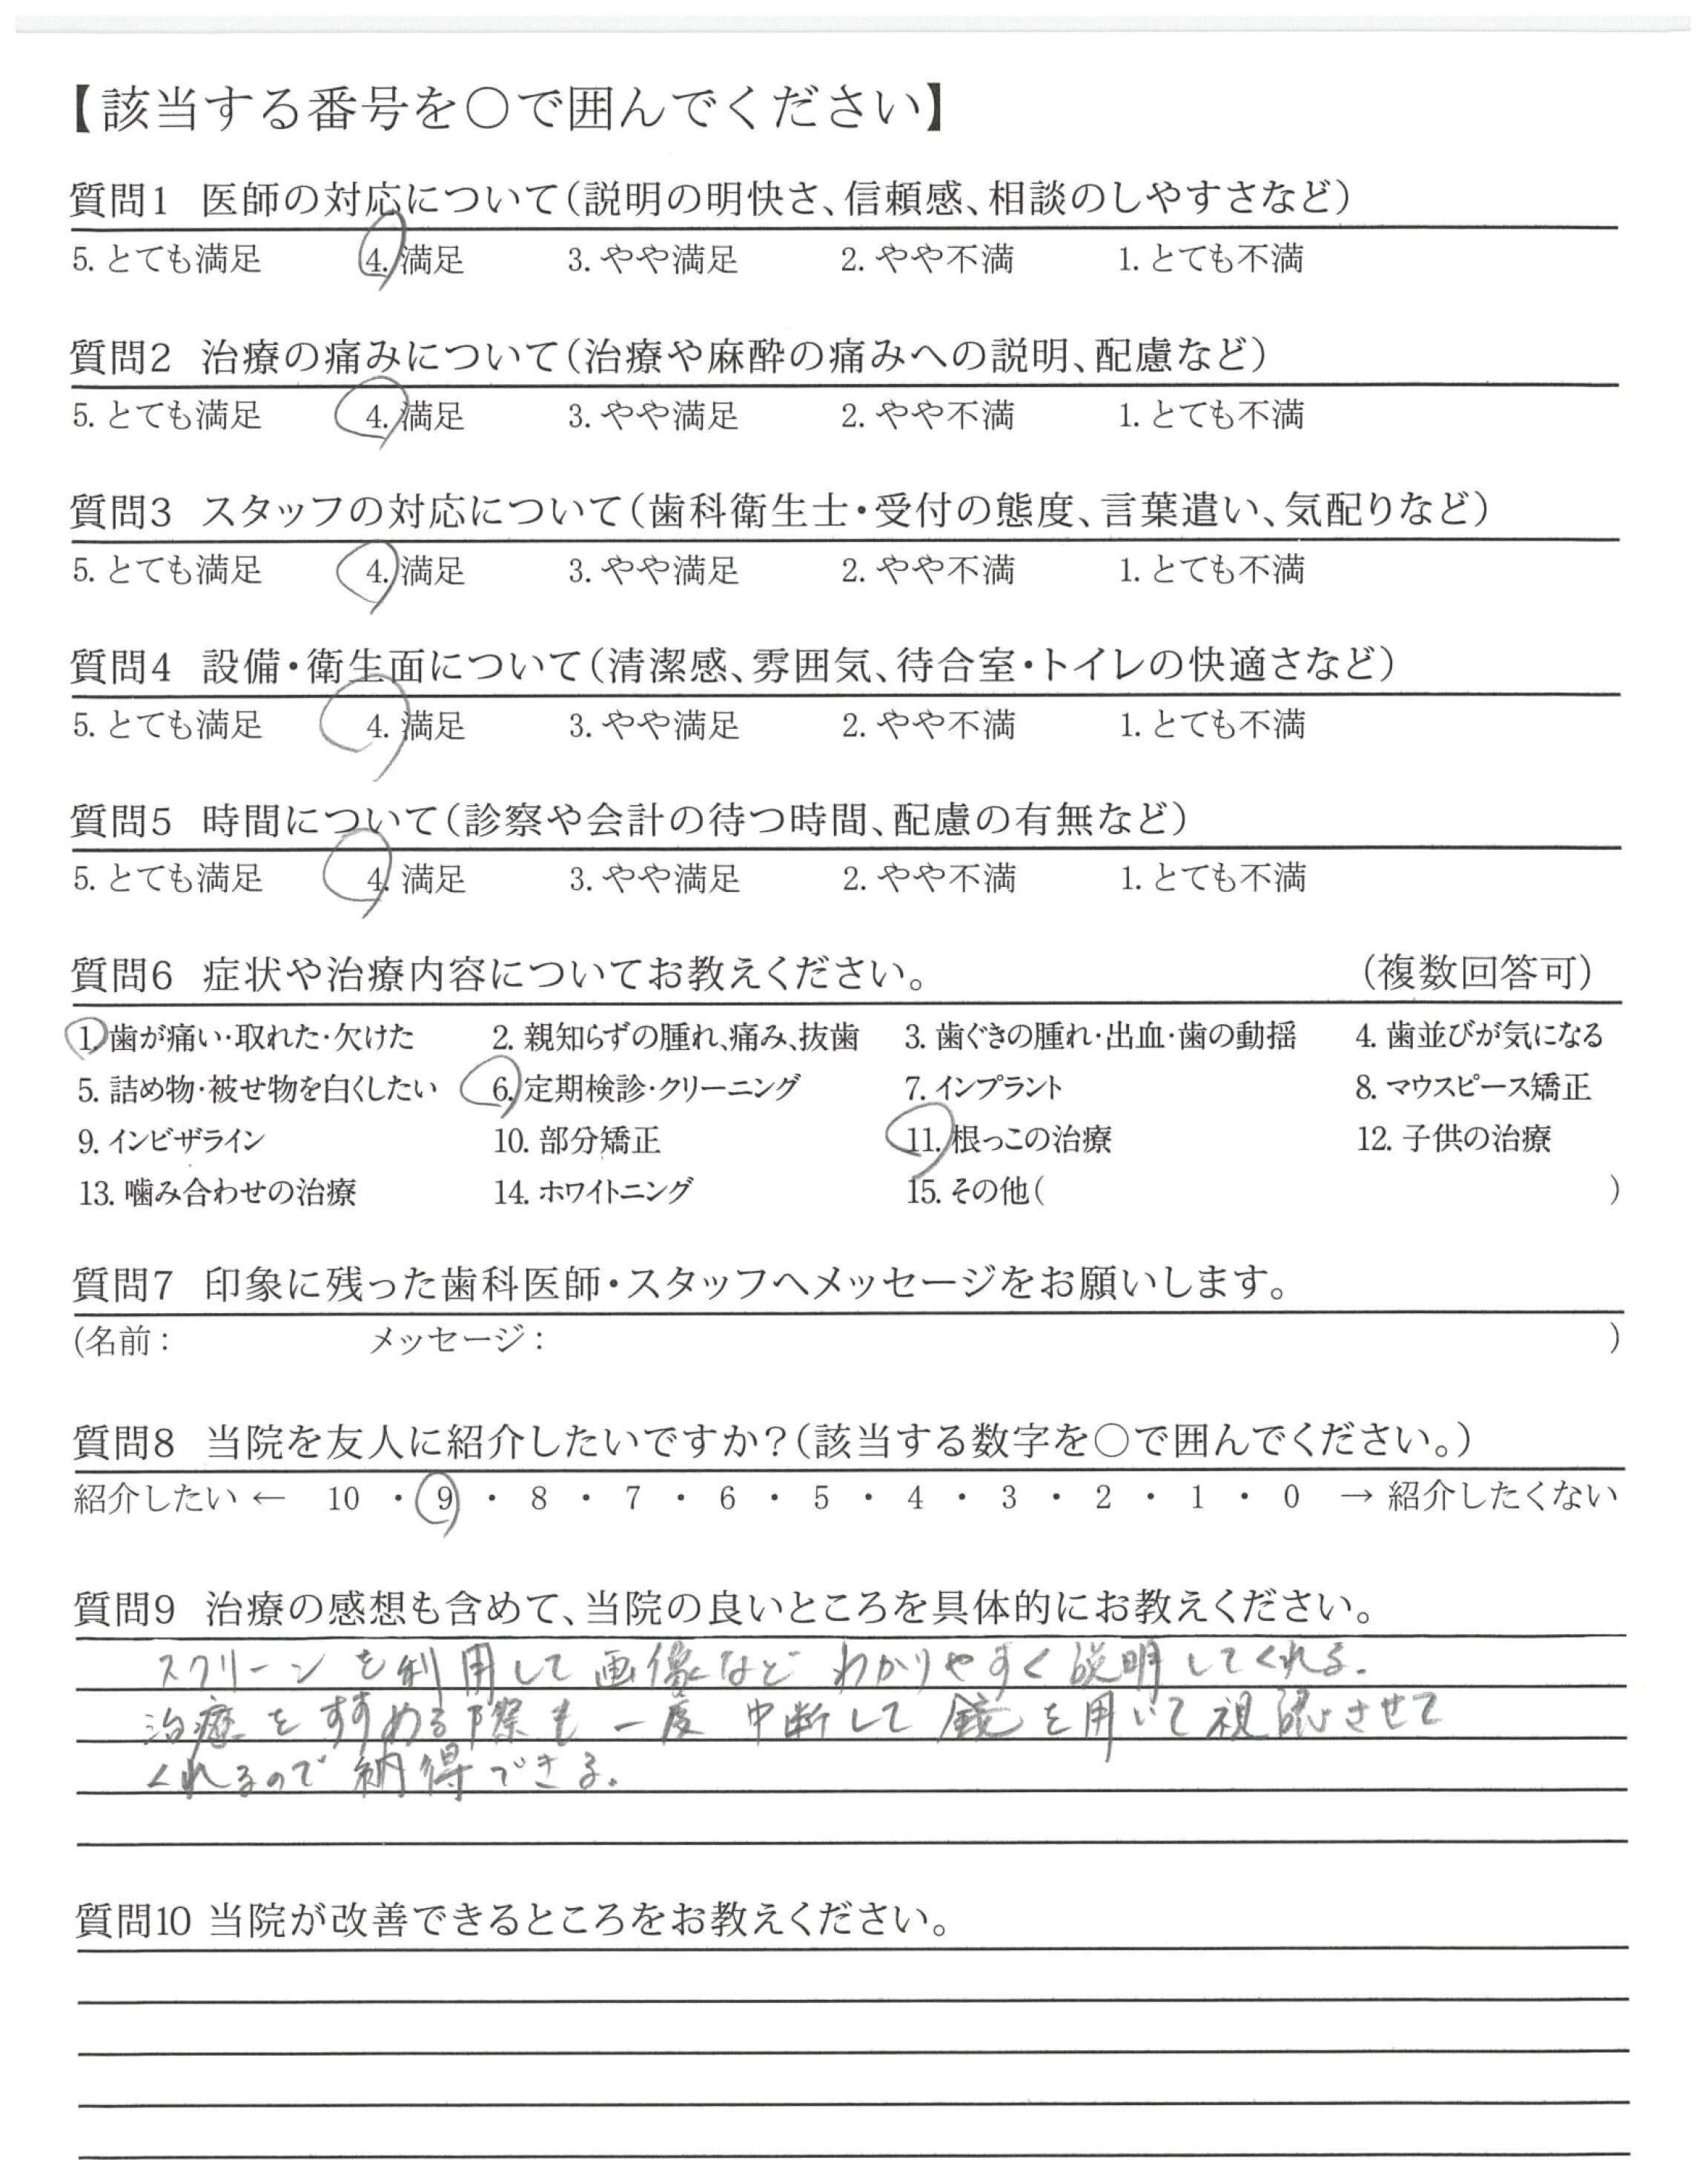 【該当する番号を○で囲んでください】
質問1 医師の対応について（説明の明快さ、信頼感、相談のしやすさなど）
5. とても満足 4. 満足 3. やや満足 2. やや不満 1. とても不満
質問2 治療の痛みについて（治療や麻酔の痛みへの説明、配慮など）
5. とても満足 4. 満足 3. やや満足 2. やや不満 1. とても不満
質問3 スタッフの対応について（歯科衛生士・受付の態度、言葉遣い、気配りなど）
5. とても満足 4. 満足 3. やや満足 2. やや不満 1. とても不満
質問4 設備・衛生面について（清潔感、雰囲気、待合室・トイレの快適さなど）
5. とても満足 4. 満足 3. やや満足 2. やや不満 1. とても不満
質問5 時間について（診察や会計の待つ時間、配慮の有無など）
5. とても満足 4. 満足 3. やや満足 2. やや不満 1. とても不満
質問6 症状や治療内容についてお教えください。 （複数回答可）
1. 歯が痛い・取れた・欠けた 2. 親知らずの腫れ、痛み、抜歯 3. 歯ぐきの腫れ・出血・歯の動揺 4. 歯並びが気になる
5. 詰め物・被せ物を白くしたい 6. 定期検診・クリーニング 7. インプラント 8. マウスピース矯正
9. インビザライン 10. 部分矯正 11. 根っこの治療 12. 子供の治療
13. 噛み合わせの治療 14. ホワイトニング 15. その他（ ）
質問7 印象に残った歯科医師・スタッフへメッセージをお願いします。
(名前： メッセージ： ）
質問8 当院を友人に紹介したいですか？（該当する数字を○で囲んでください。）
紹介したい ← 10 ・ 9 ・ 8 ・ 7 ・ 6 ・ 5 ・ 4 ・ 3 ・ 2 ・ 1 ・ 0 → 紹介したくない
質問9 治療の感想も含めて、当院の良いところを具体的にお教えください。
スクリーンを利用して画像などわかりやすく説明してくれる。
治療をすすめる際も一度中断して鏡を用いて視認させて
くれるので納得できる。
質問10 当院が改善できるところをお教えください。